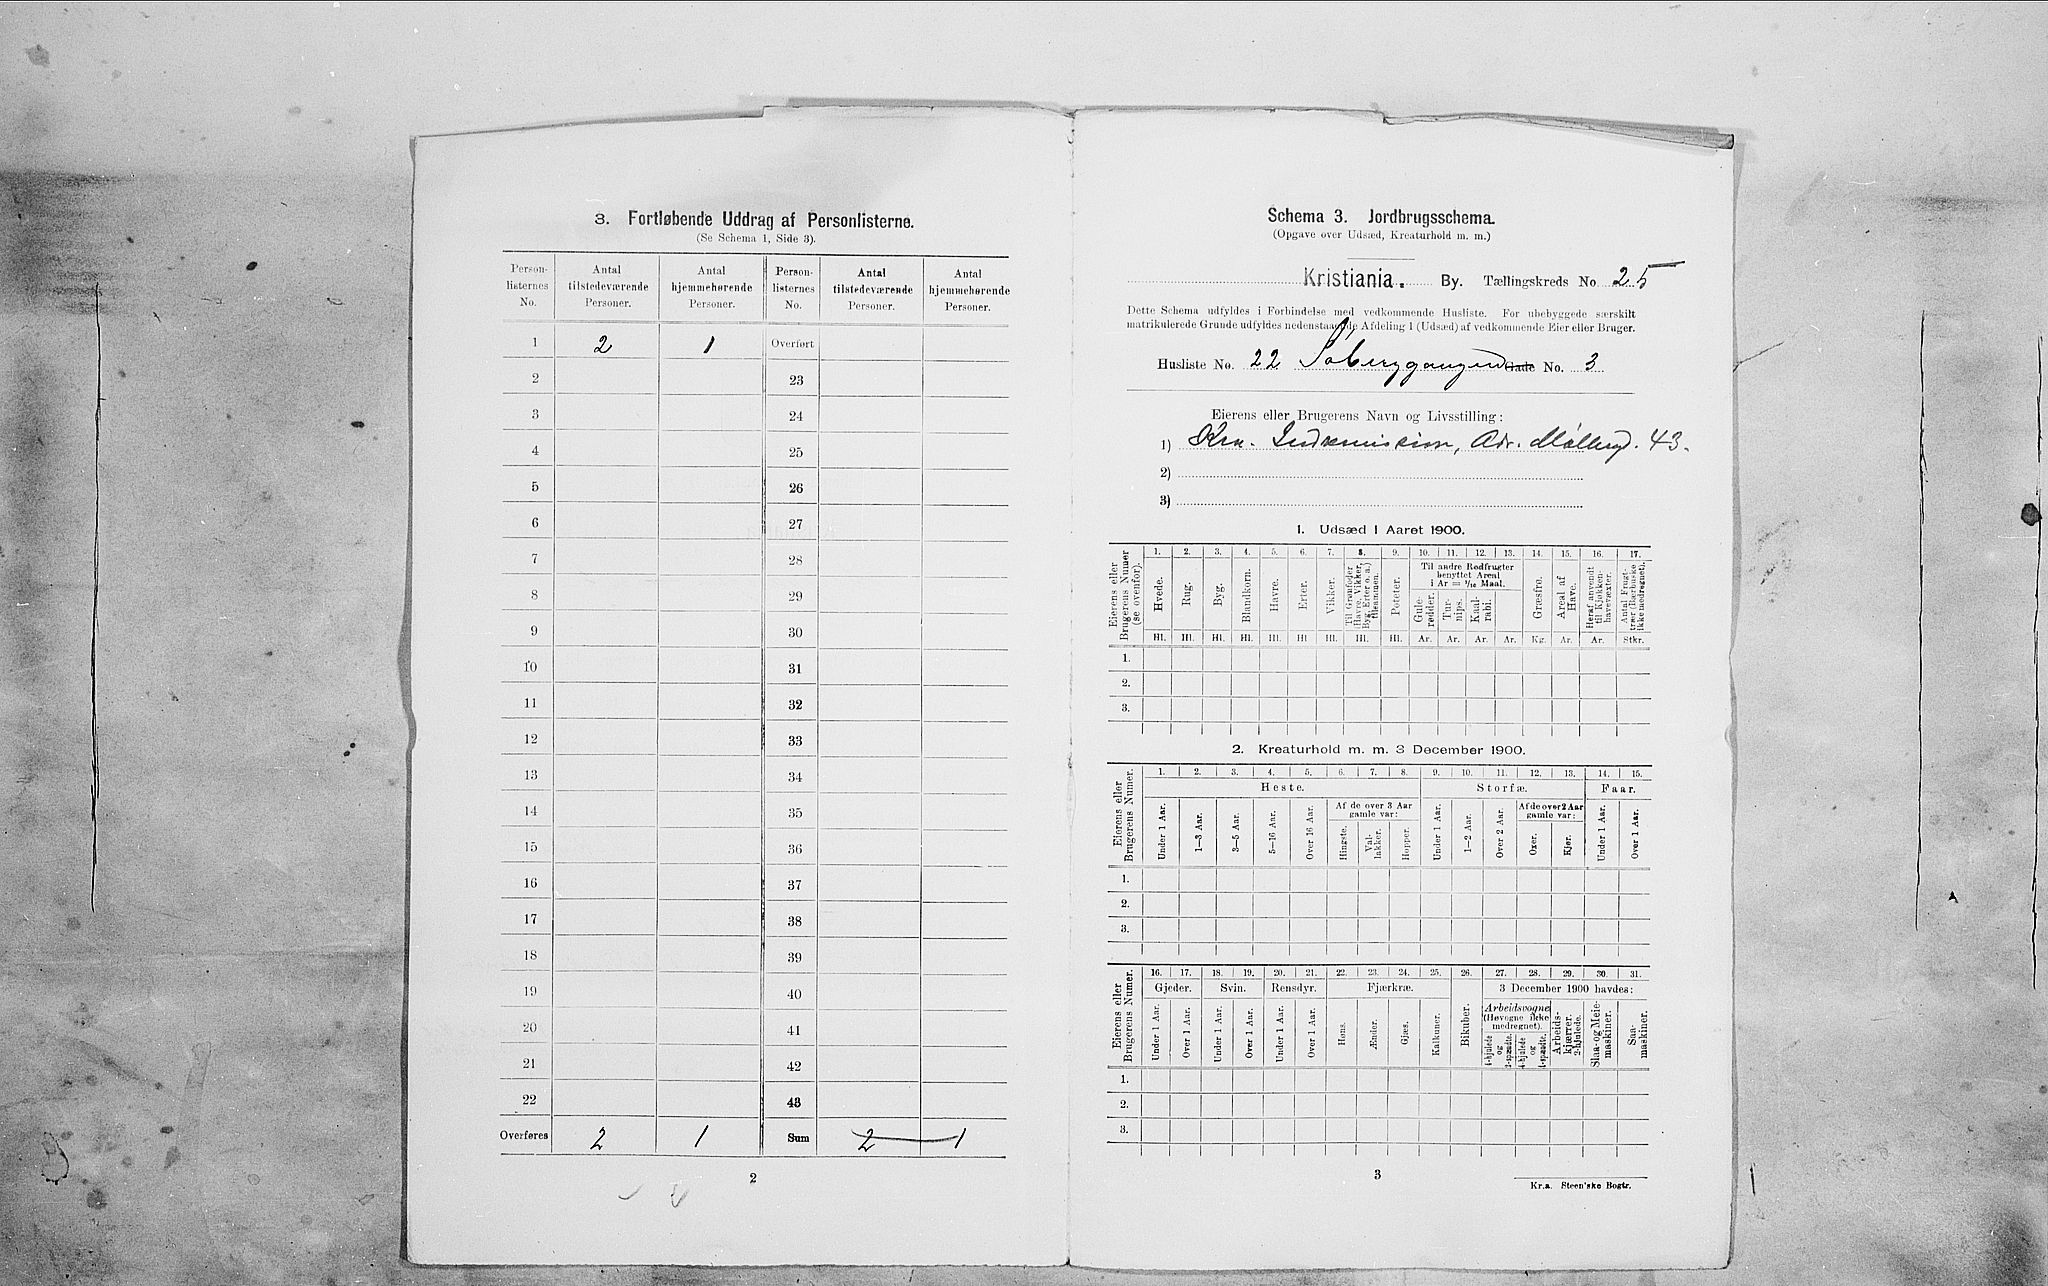 3. Fortløbende Uddrag af Personlisterne.
(Se Schema 1, Side 3).
Person-listernes No. | Antal tilstedeværende Personer. | Antal hjemmehørende Personer. | Person-listernes No. | Antal tilstedeværende Personer. | Antal hjemmehørende Personer.
1 | 2 | 1 | Overført
2 | 23
3 | 24
4 | 25
5 | 26
6 | 27
7 | 28
8 | 29
9 | 30
10 | 31
11 | 32
12 | 33
13 | 34
14 | 35
15 | 36
16 | 37
17 | 38
18 | 39
19 | 40
20 | 41
21 | 42
22 | 43
Overføres | 2 | 1 | Sum | 2 | 1
2
Schema 3. Jordbrugsschema.
(Opgave over Udsæd, Kreaturhold m. m.)
Kristiania. By. Tællingskreds No. 25
Dette Schema udfyldes i Forbindelse med vedkommende Husliste. For ubebyggede særskilt
matrikulerede Grunde udfyldes nedenstaaende Afdeling 1 (Udsæd) af vedkommende Eier eller Bruger.
Husliste No. 22 Söberggangen Gade No. 3
Eierens eller Brugerens Navn og Livsstilling:
1) Krn. Indremission, Adr. Möllerg. 43.
2)
3)
1. Udsæd i Aaret 1900.
Eierens eller Brugerens Numer (se ovenfor). | 1. | 2. | 3. | 4. | 5. | 6. | 7. | 8. | 9. | 10. | 11. | 12. | 13. | 14. | 15. | 16. | 17.
Til andre Rodfrugter benyttet Areal i Ar = 1/10 Maal.
Hvede. | Rug. | Byg. | Blandkorn. | Havre. | Erter. | Vikker. | Til Grønfoder (Havre, Vikker, Byg, Erter o. a.) tilsammen. | Poteter. | Gule-rødder. | Tur-nips. | Kaal-rabi. | Græsfrø. | Areal af Have. | Heraf anvendt til Kjøkken-havevæxter. | Antal Frugt-træer (Bærbuske ikke medregnet).
Hl. | Hl. | Hl. | Hl. | Hl. | Hl. | Hl. | Hl. | Hl. | Ar. | Ar. | Ar. | Ar. | Kg. | Ar. | Ar. | Stkr.
1.
2.
3.
2. Kreaturhold m. m. 3 December 1900.
Eierens eller Brugerens Numer. | 1. | 2. | 3. | 4. | 5. | 6. | 7. | 8. | 9. | 10. | 11. | 12. | 13. | 14. | 15.
Heste. | Storfæ. | Faar.
Af de over 3 Aar gamle var: | Af de over 2 Aar gamle var:
Under 1 Aar. | 1—3 Aar. | 3—5 Aar. | 5—16 Aar. | Over 16 Aar. | Hingste. | Val-lakker. | Hopper. | Under 1 Aar. | 1—2 Aar. | Over 2 Aar. | Oxer. | Kjør. | Under 1 Aar. | Over 1 Aar.
1.
2.
3.
Eierens eller Brugerens Numer. | 16. | 17. | 18. | 19. | 20. | 21. | 22. | 23. | 24. | 25. | 26. | 27. | 28. | 29. | 30. | 31.
Gjeder. | Svin. | Rensdyr. | Fjærkræ. | 3 December 1900 havdes:
Under 1 Aar. | Over 1 Aar. | Under 1 Aar. | Over 1 Aar. | Under 1 Aar. | Over 1 Aar. | Høns. | Ænder. | Gjæs. | Kalkuner. | Bikuber. | Arbeidsvogne (Høvogne ikke medregnet). | 4-hjulede og 2-spændte. | 4-hjulede og 1-spændte. | Arbeids-kjærrer. 2-hjulede. | Slaa- og Meie-maskiner. | Saa-maskiner.
1.
2.
3.
3
Kr.a. Steen'ske Bogtr.